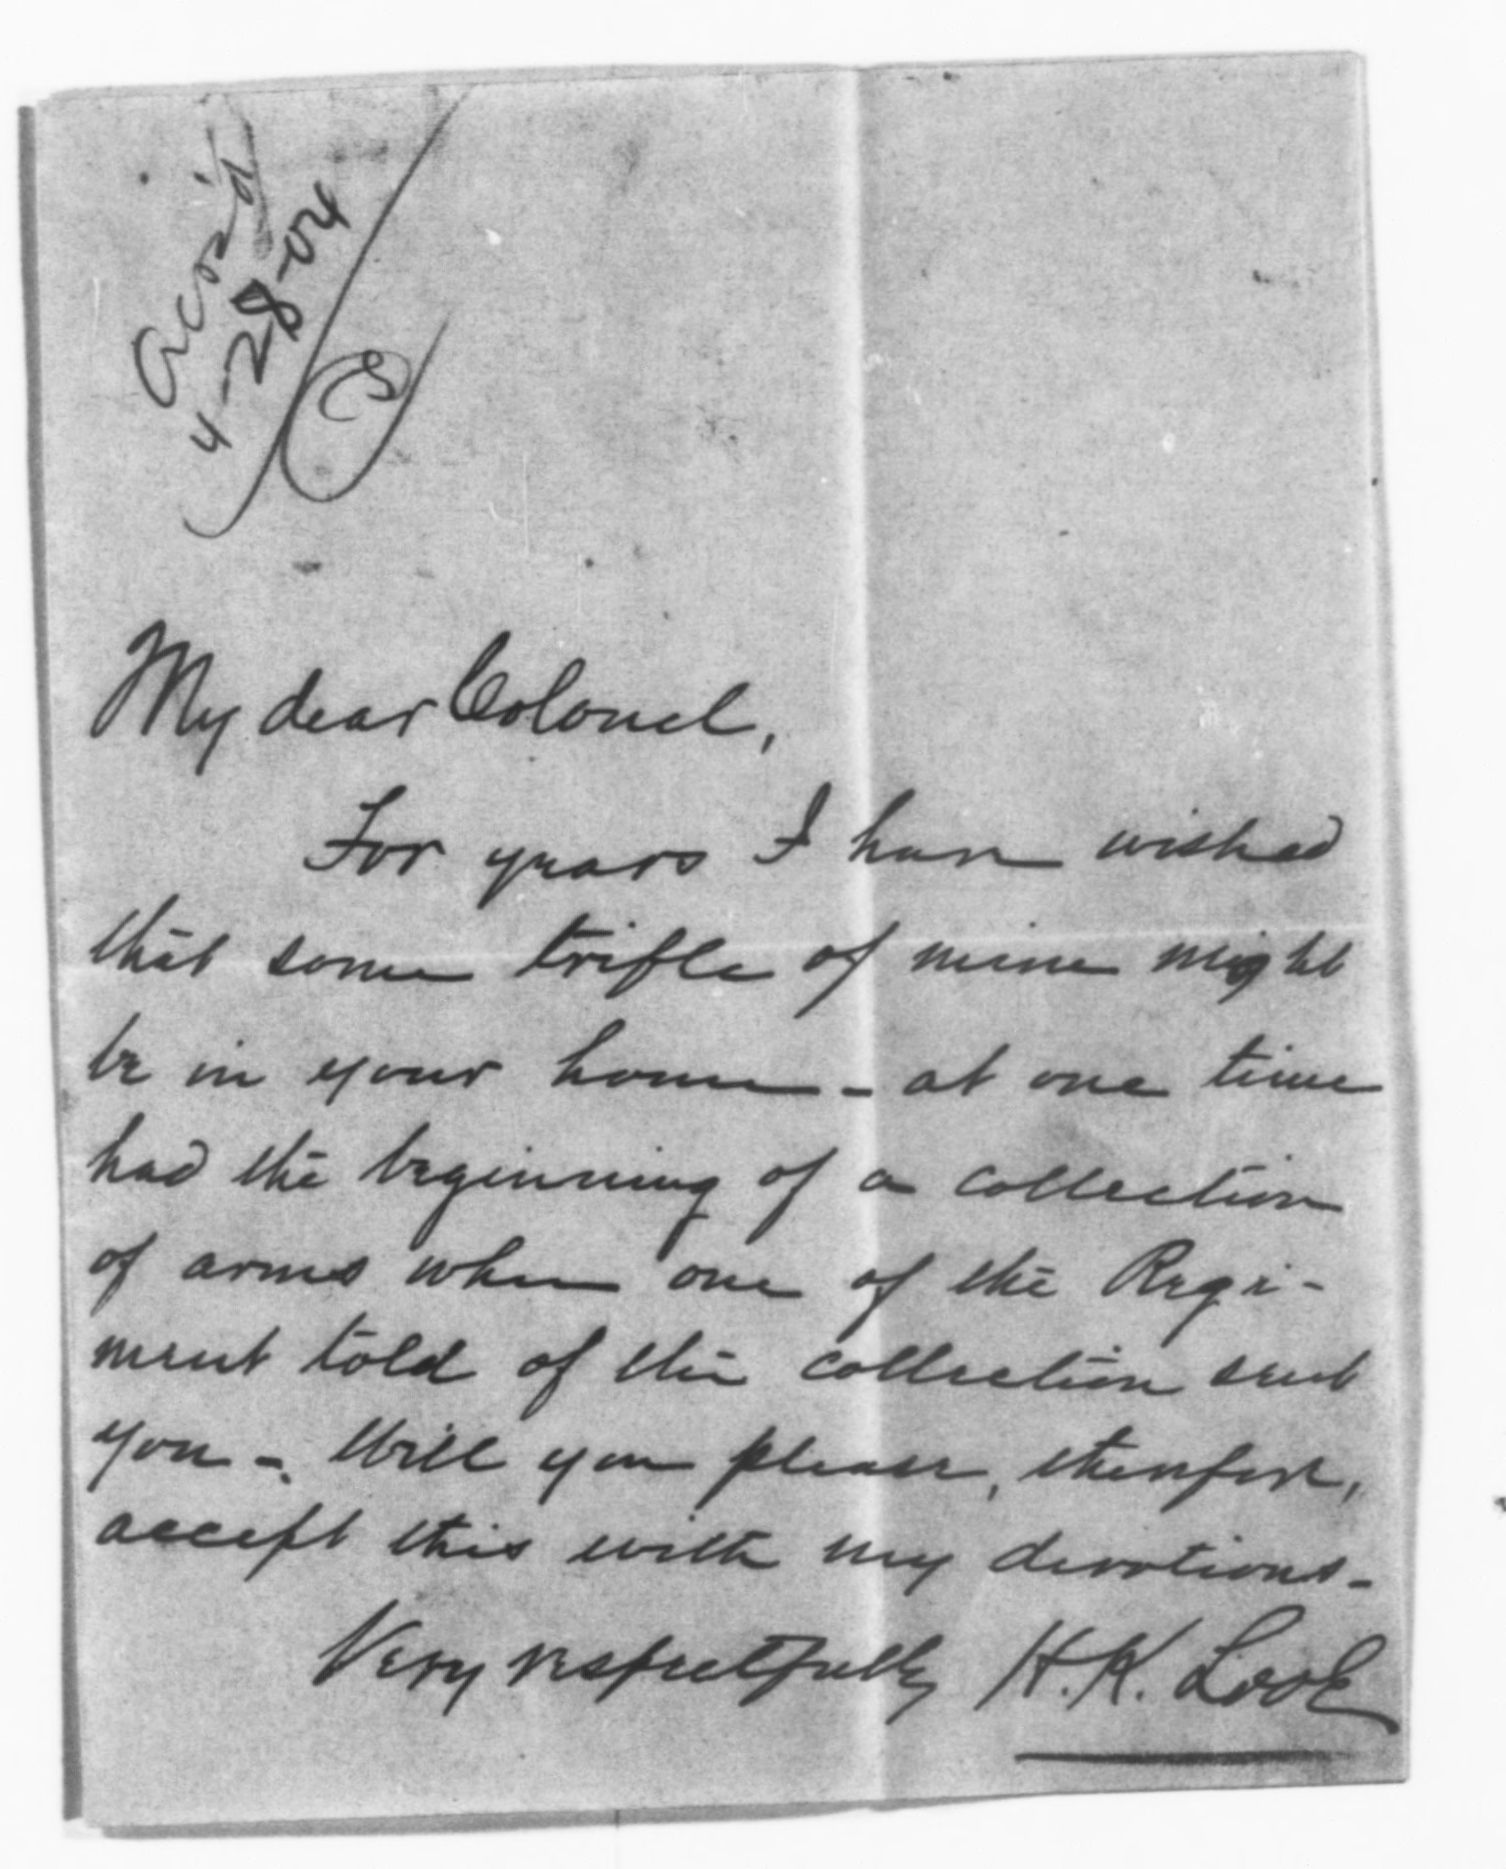 ack'd
4-28-04
My dear Colonel,
For years I have wished
that some trifle of mine might
be in your home - at one time
had the beginning of a collection
of arms when one of the Regi-
ment told of the collection sent
you -. Will you please, therefore,
accept this with my devotions -
Very respectfully H.K. Look